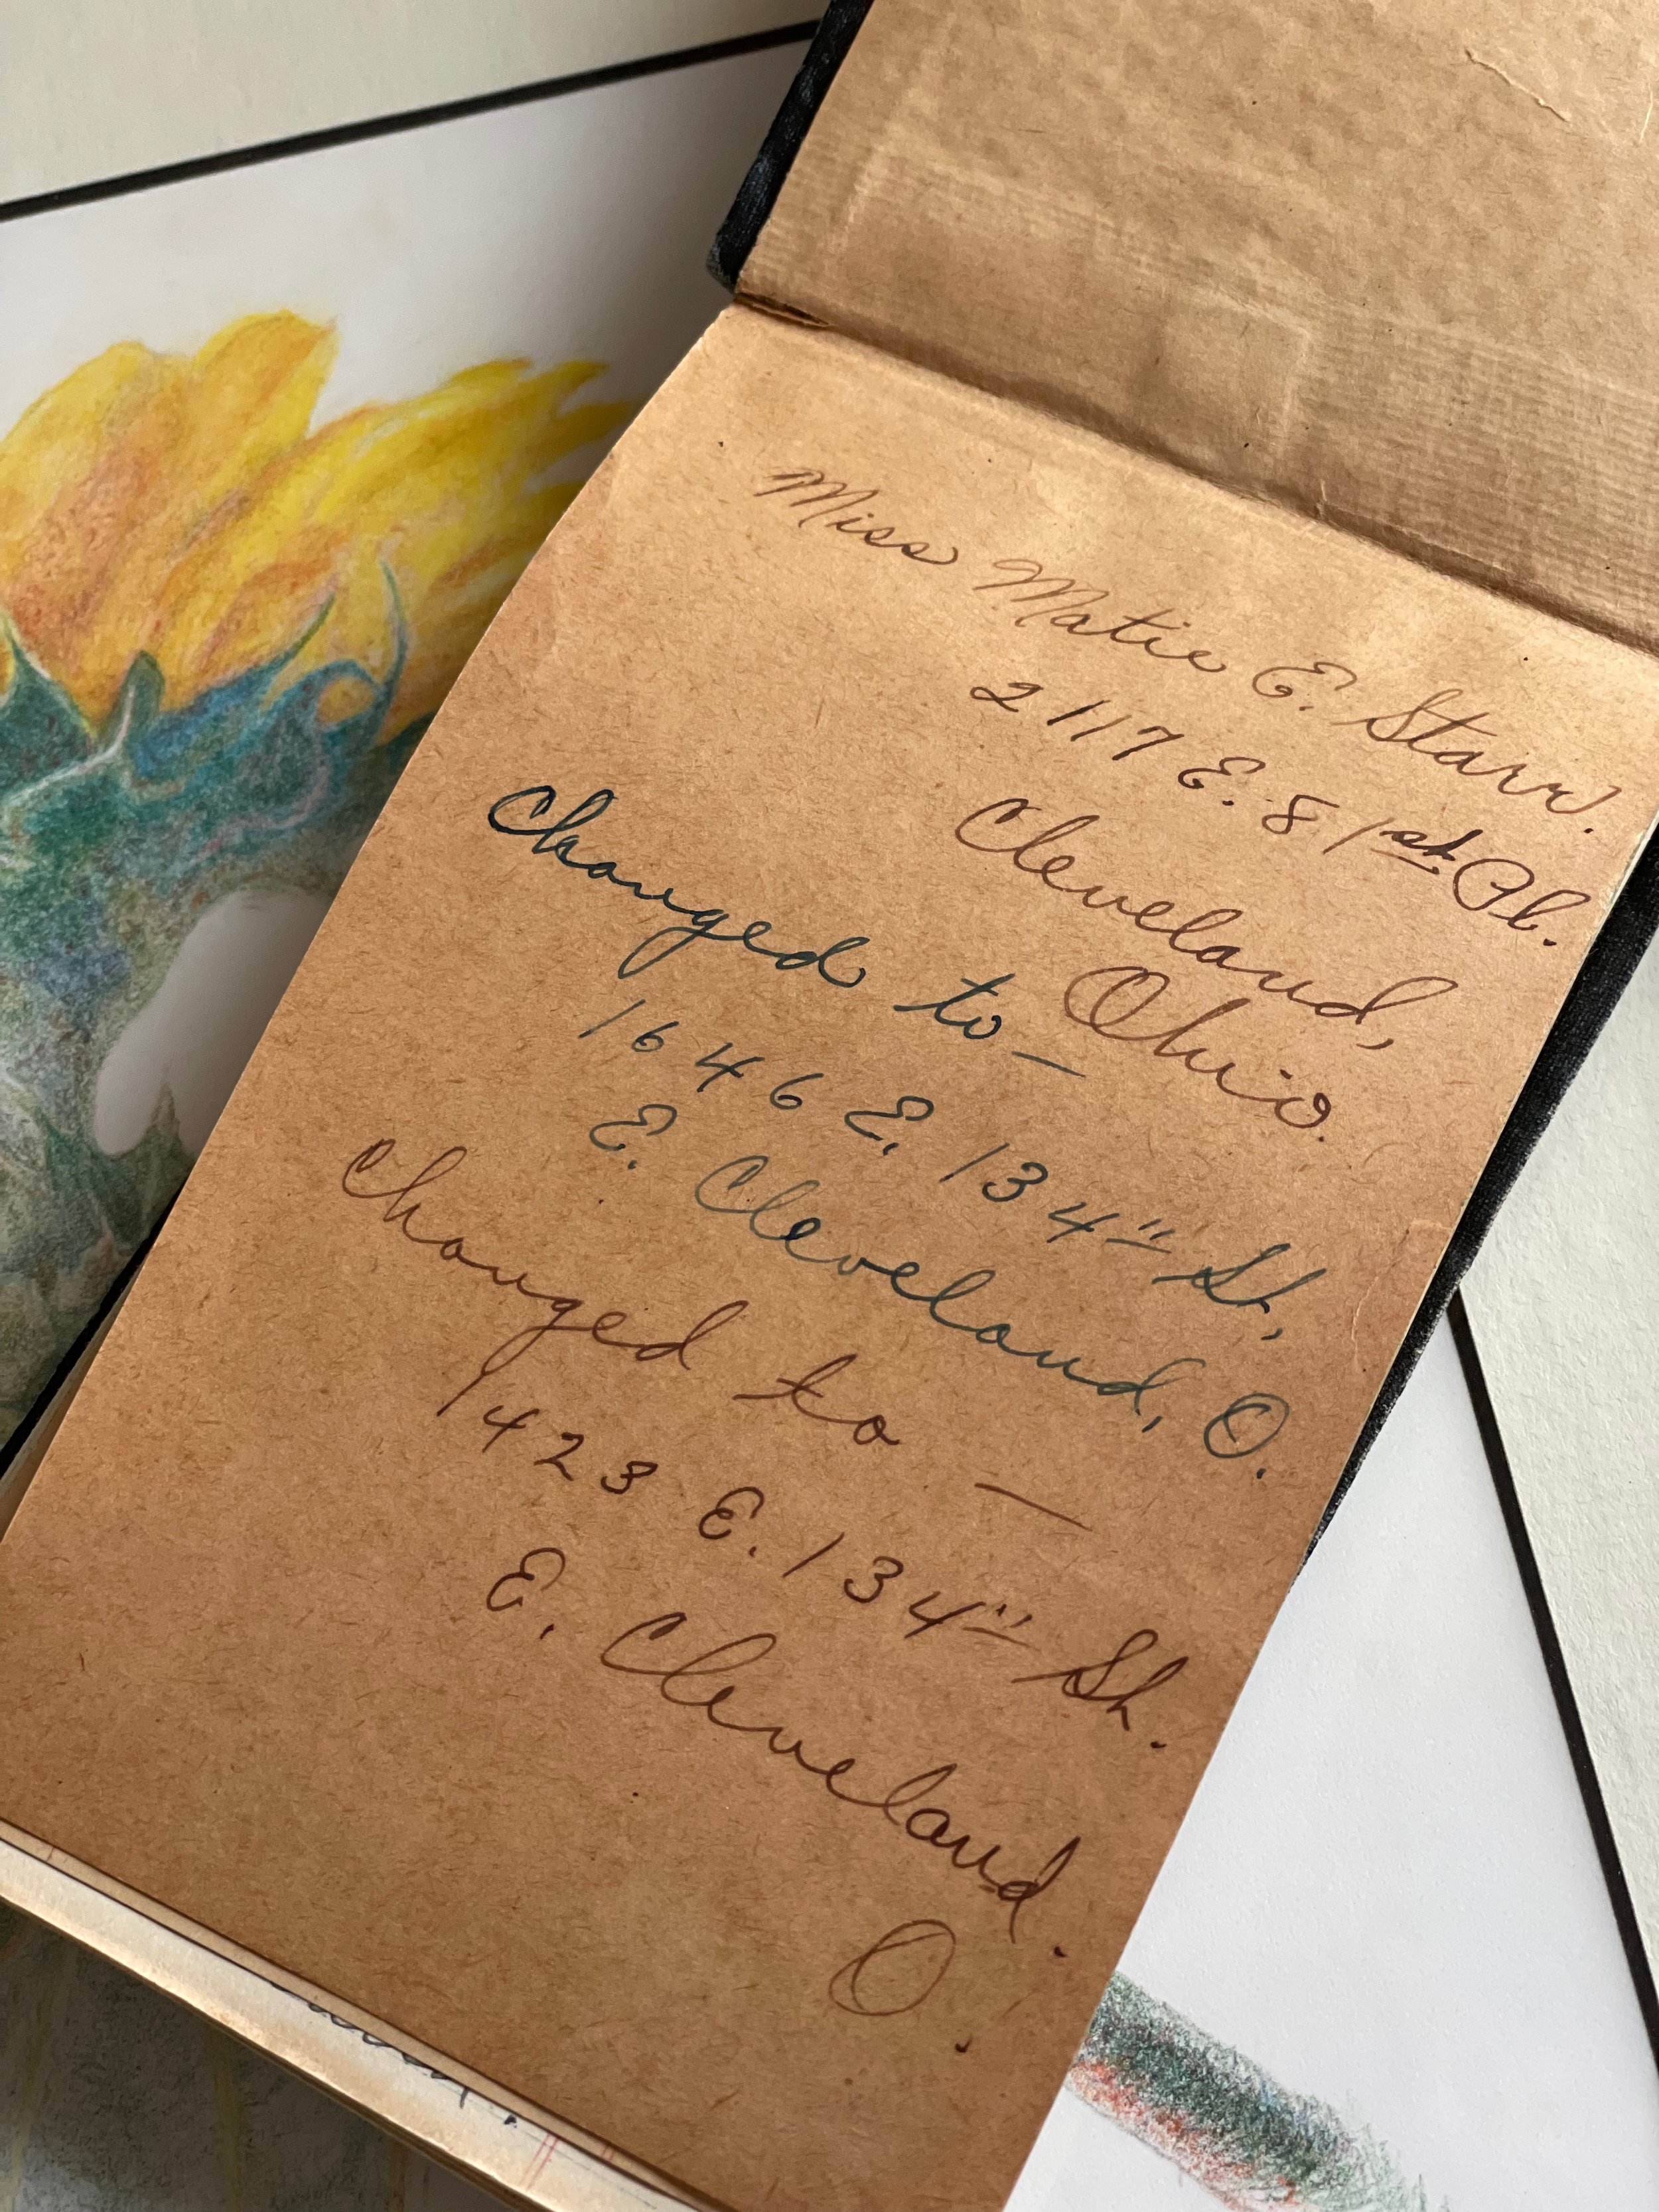 Miss Matie E. Starr.
2117 E. 81st Pl.
Cleveland,
Ohio.
Changed to —
1646 E. 134" St,
E. Cleveland, O.
Changed to —
1423 E. 134" St.
E. Cleveland.
O.